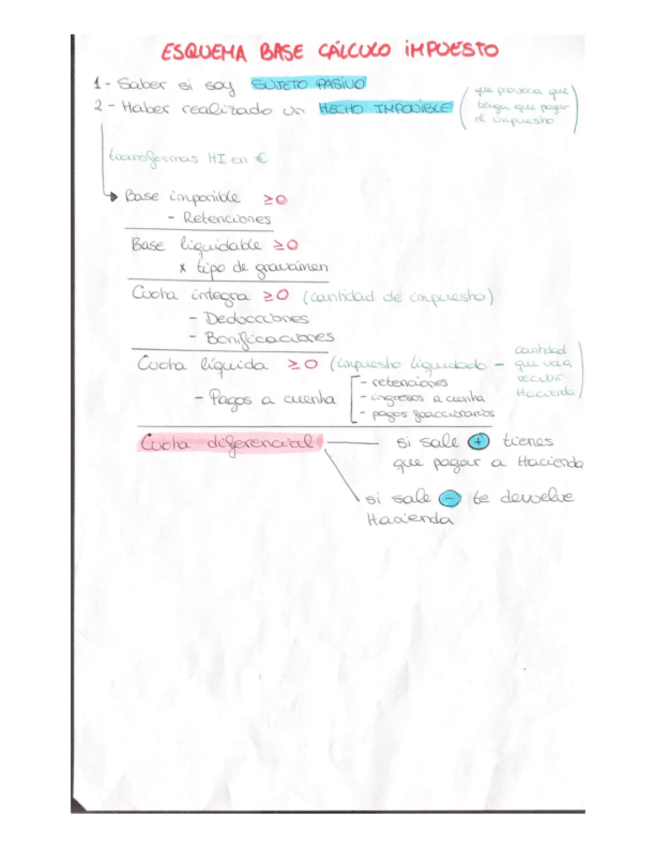 ESQUEMA BASE CÁLCULO IMPUESTO
1 - Saber si soy SUJETO PASIVO
2 - Haber realizado un HECHO IMPONIBLE (que provoca que
tenga que pagar
el impuesto)
transformas HI en €
Base imponible ≥0
- Retenciones
Base liquidable ≥0
x tipo de gravámen
Cuota íntegra ≥0 (cantidad de impuesto)
- Deducciones
- Bonificaciones
Cuota líquida ≥0 (impuesto liquidado - cantidad
que va a
recibir
Hacienda)
- Pagos a cuenta
- retenciones
- ingresos a cuenta
- pagos fraccionarios
Cuota diferencial
si sale + tienes
que pagar a Hacienda
si sale - te devuelve
Hacienda